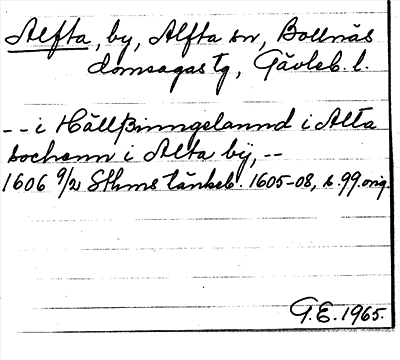 Alfta, by, Alfta sn, Bollnäs
domsagas tg, Gävleb. l.
-- i Hällßinngelannd i Alta
sochenn i Alta bÿ, --
1606 9/2 Sthms tänkeb. 1605-08, s. 99. orig.
G.E. 1965.